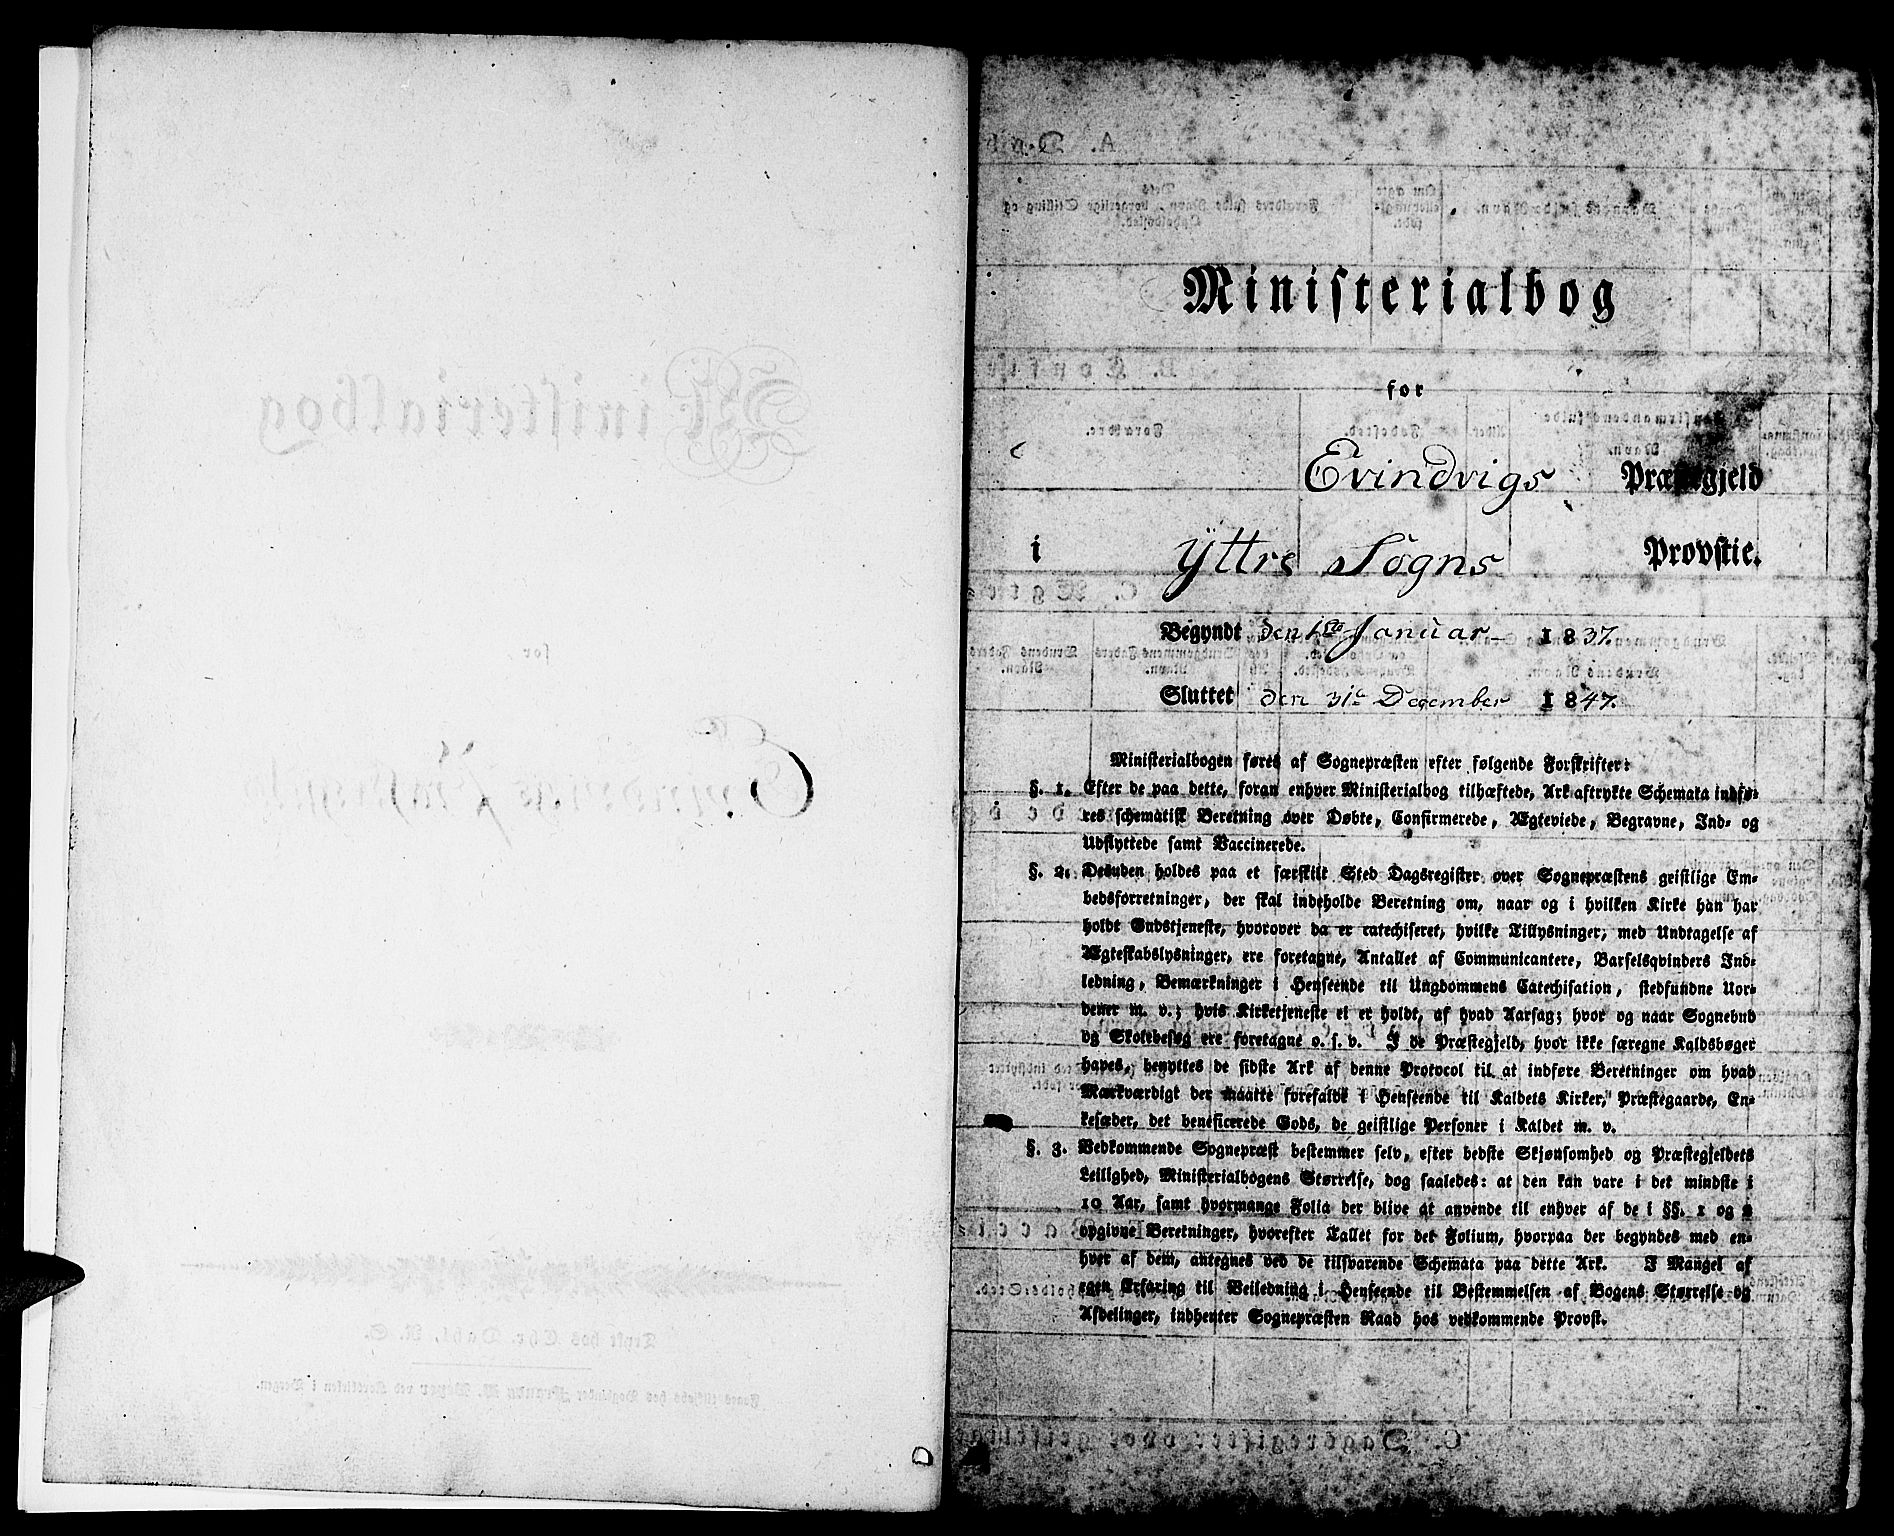 Ministerialbog
for
Evindvigs Præstegjeld
i Yttre Sogns Provstie.
Begyndt den 1ste Januar 1837.
Sluttet den 31te December 1847.
Ministerialbogen føres af Sognepræsten efter følgende Forskrifter:
§. 1. Efter de paa dette, foran enhver Ministerialbog tilhæftede, Ark aftrykte Schemata indfø-
res schematisk Beretning over Døbte, Confirmerede, Ægteviede, Begravne, Ind- og
Udflyttede samt Vaccinerede.
§. 2. Desuden holdes paa et særskilt Sted Dagsregister over Sognepræstens geistlige Em-
bedsforretninger, der skal indeholde Beretning om, naar og i hvilken Kirke han har
holdt Gudstjeneste, hvorover da er catechiseret, hvilke Tillysninger, med Undtagelse af
Ægteskabslysninger, ere foretagne, Antallet af Communicantere, Barselqvinders Ind-
ledning, Bemærkninger i Henseende til Ungdommens Catechisation, stedfundne Uor-
dener m. v.; hvis Kirketjeneste ei er holdt, af hvad Aarsag; hvor og naar Sognebud
og Skolebesøg ere foretagne o. s. v. I de Præstegjeld, hvor ikke særegne Kaldsbøger
haves, benyttes de sidste Ark af denne Protocol til at indføre Beretninger om hvad
Mærkværdigt der maatte forefalde i Henseende til Kaldets Kirker, Præstegaarde, En-
kesæder, det beneficerede Gods, de geistlige Personer i Kaldet m. v.
§. 3. Vedkommende Sognepræst bestemmer selv, efter bedste Skjønsomhed og Præstegjeldets
Leilighed, Ministerialbogens Størrelse, dog saaledes: at den kan vare i det mindste i
10 Aar, samt hvormange Folia der blive at anvende til enhver af de i §§. 1 og 2
opgivne Beretninger, hvorefter Tallet for det Folium, hvorpaa der begyndes med en-
hver af dem, antegnes ved de tilsvarende Schemata paa dette Ark. I Mangel af
egen Erfaring til Veiledning i Henseende til Bestemmelsen af Bogens Størrelse og
Afdelinger, indhenter Sognepræsten Raad hos vedkommende Provst.